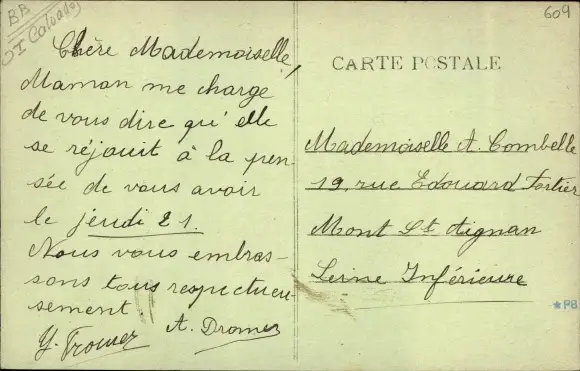 BB
OI Calvados
609
Chère Mademoiselle,
Maman me charge
de vous dire qu'elle
se réjouit à la pen-
sée de vous avoir
le jeudi 21.
Nous vous embras-
sons tous respectueu-
sement.
A. Dromer
CARTE POSTALE
Mademoiselle A. Combelle
19, rue Edouard Fortier
Mont St Aignan
Seine Inférieure
*PB